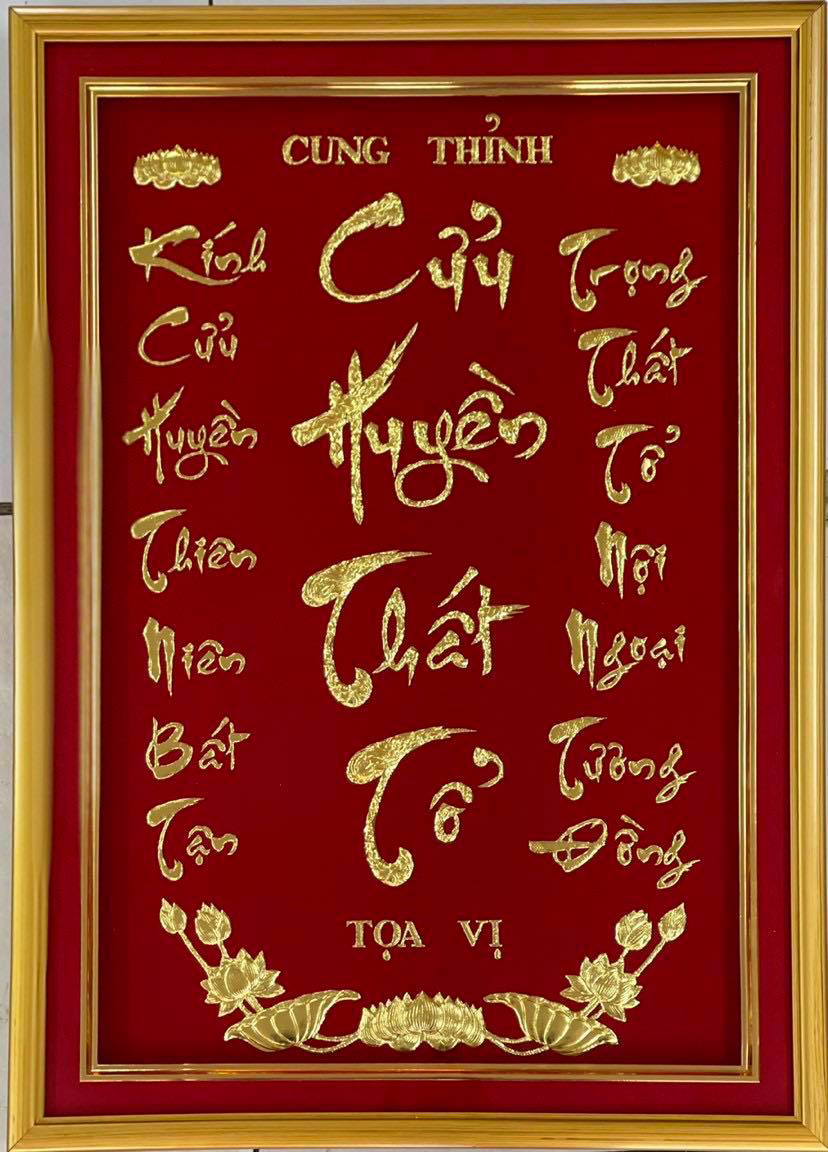 CUNG THỈNH
Cửu
Huyền
Thất
Tổ
TỌA VỊ
Kính
Cửu
Huyền
Thiên
Niên
Bất
Tận
Trọng
Thất
Tổ
Nội
Ngoại
Tường
Đồng